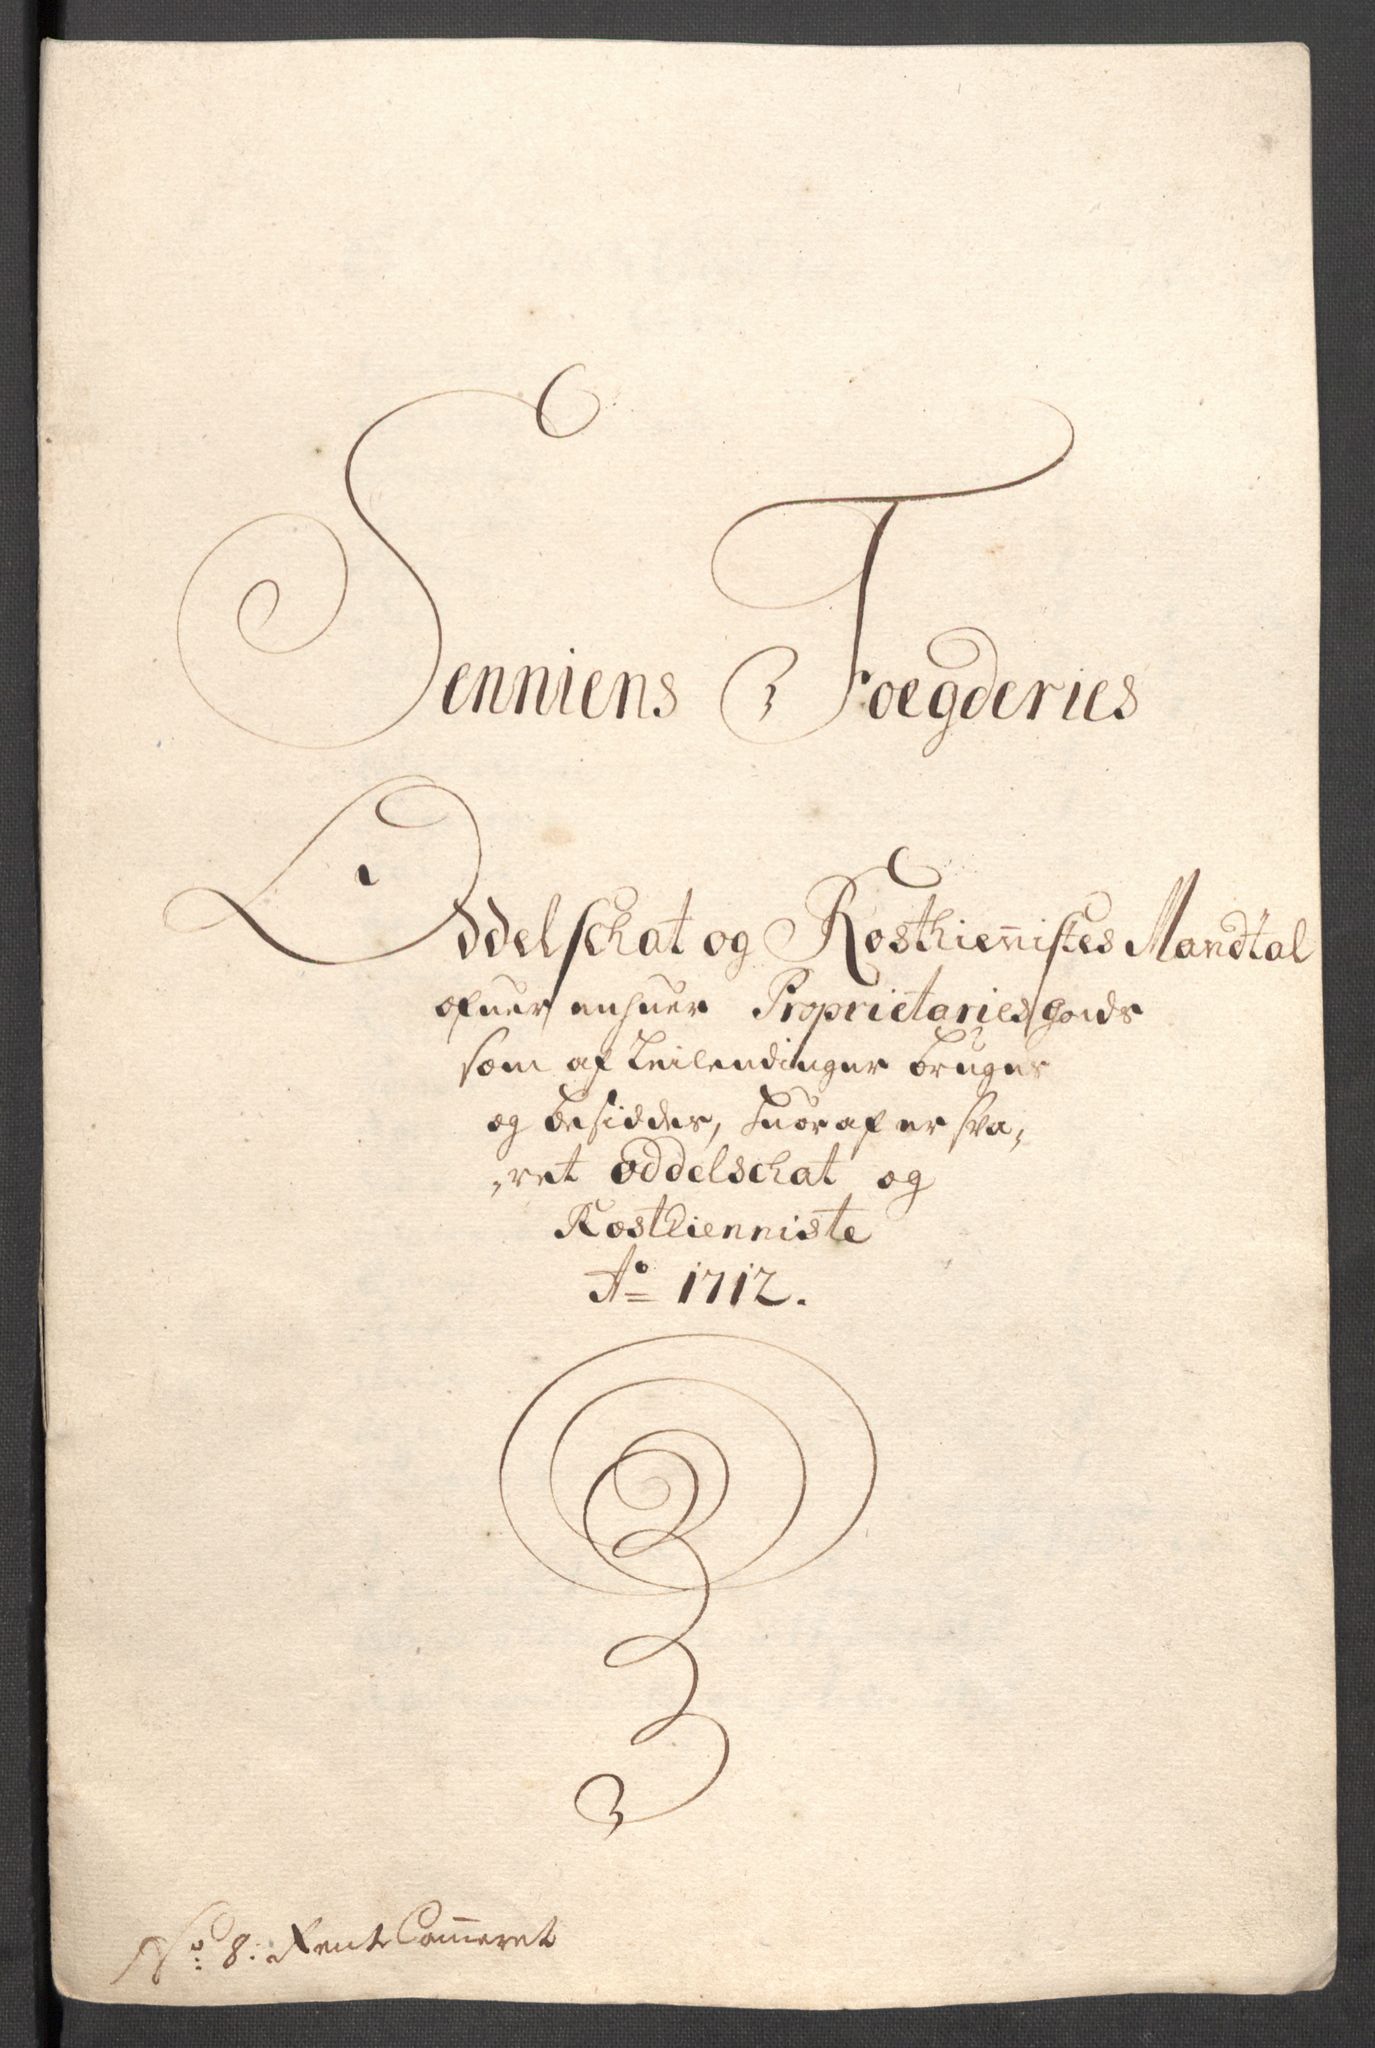 Senniens Foegderies
Oddelschat og Rosthien̄istes Mandtal
ofuer enhuer Proprietaries Goeds
som af Leilendinger bruges
og besiddes, huoraf er sva,
,ret oddelschat og
Rosthienniste
Ao 1712.
No: 8. Rente Cam̄eret